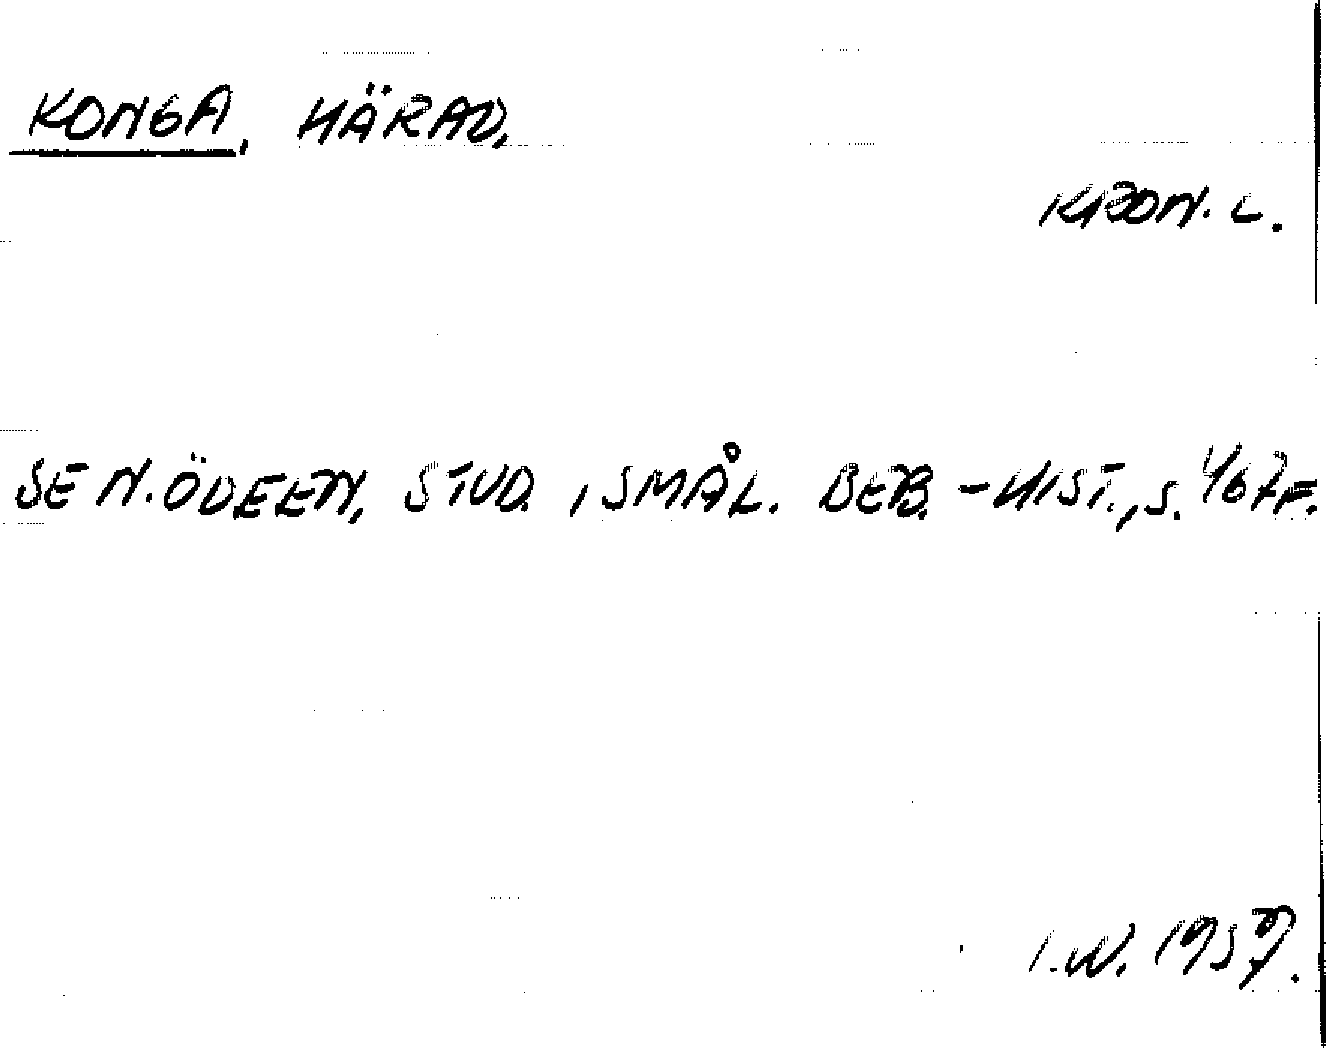 KONGA, HÄRAD,
KRON. L.
SE N. ÖDEEN, STUD. I SMÅL. BEB.-HIST., S. 467 F.
I.W. 1957.